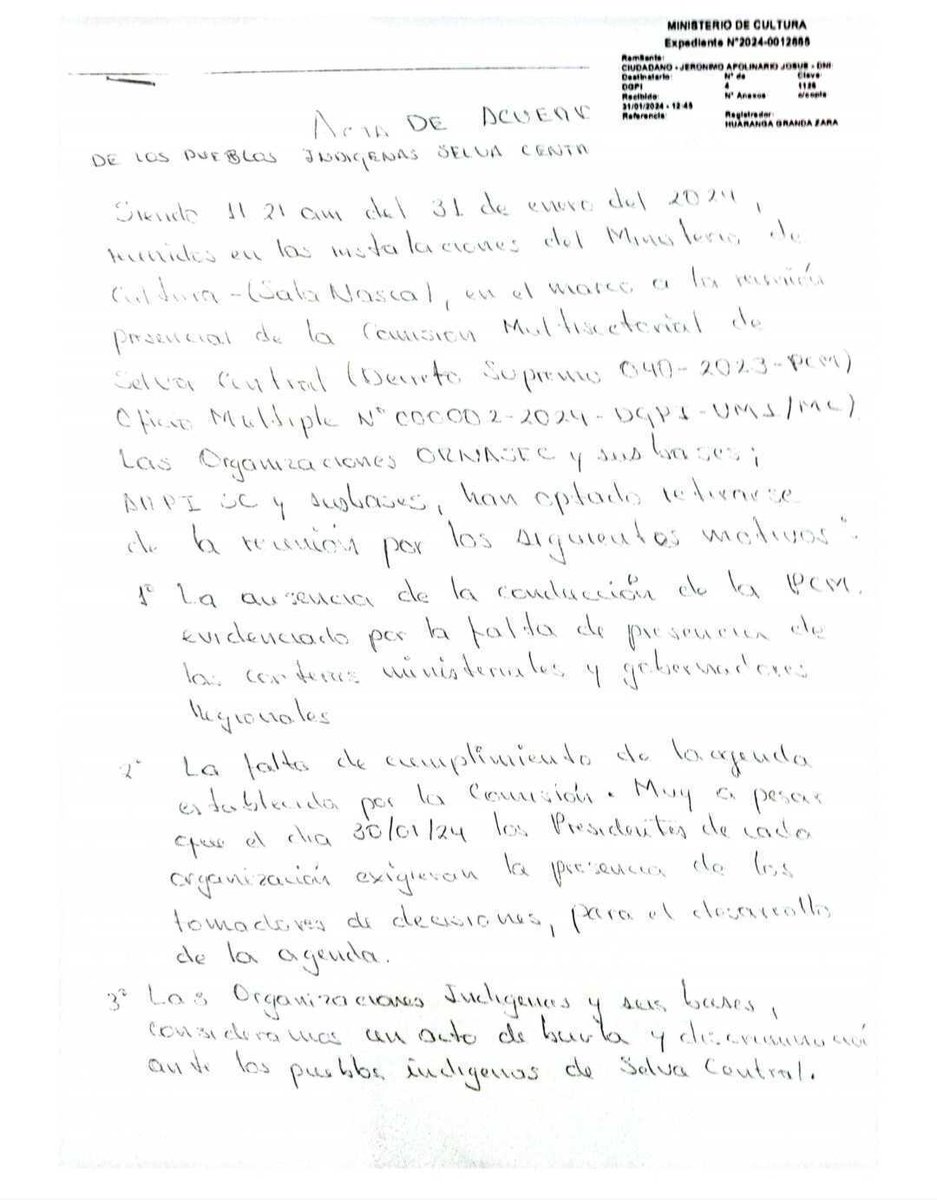 MINISTERIO DE CULTURA
Expediente N°2024-0012885
Remitente:
CIUDADANO - JERONIMO APOLINARIO JOSUE - DNI
Destinatario: N° de Clave
DGPI 4 1126
Recibido: N° Anexos s/copia
31/01/2024 - 12:45
Referencia: Registrador:
HUARANGA GRANDA ZARA
Acta DE ACUERD
DE LOS PUEBLOS INDIGENAS SELVA CENTR
Siendo 11 21 am del 31 de enero del 2024,
reunidos en las instalaciones del Ministerio de
Cultura - (Sala Nasca), en el marco a la reunión
presencial de la Comisión Multisectorial de
Selva Central (Decreto Supremo 040-2023-PCM)
Oficio Multiple N° 000002-2024-DGPI-VMI/MC)
Las Organizaciones ORNASEC y sus bases;
ANPI SC y sus bases, han optado retirarse
de la reunión por los siguientes motivos:
1° La ausencia de la conducción de la PCM.
evidenciado por la falta de presencia de
las carteras ministeriales y gobernadores
Regionales
2° La falta de cumplimiento de la agenda
establecida por la Comisión. Muy a pesar
que el dia 30/01/24 los Presidentes de cada
organización exigieran la presencia de los
tomadores de decisiones, para el desarrollo
de la agenda.
3° Las Organizaciones Indigenas y sus bases,
consideramos un acto de burla y discriminació
ante los pueblos indigenas de Selva Central.